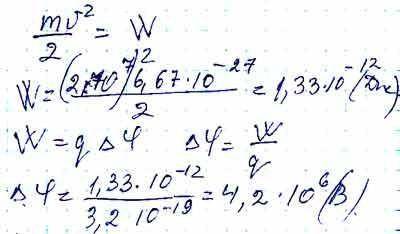 mυ²/2 = W
W = (2·10⁷)² 6,67·10⁻²⁷/2 = 1,33·10⁻¹² (Дж)
W = q Δφ   Δφ = W/q
Δφ = 1,33·10⁻¹²/3,2 10⁻¹⁹ = 4,2·10⁶ (В)